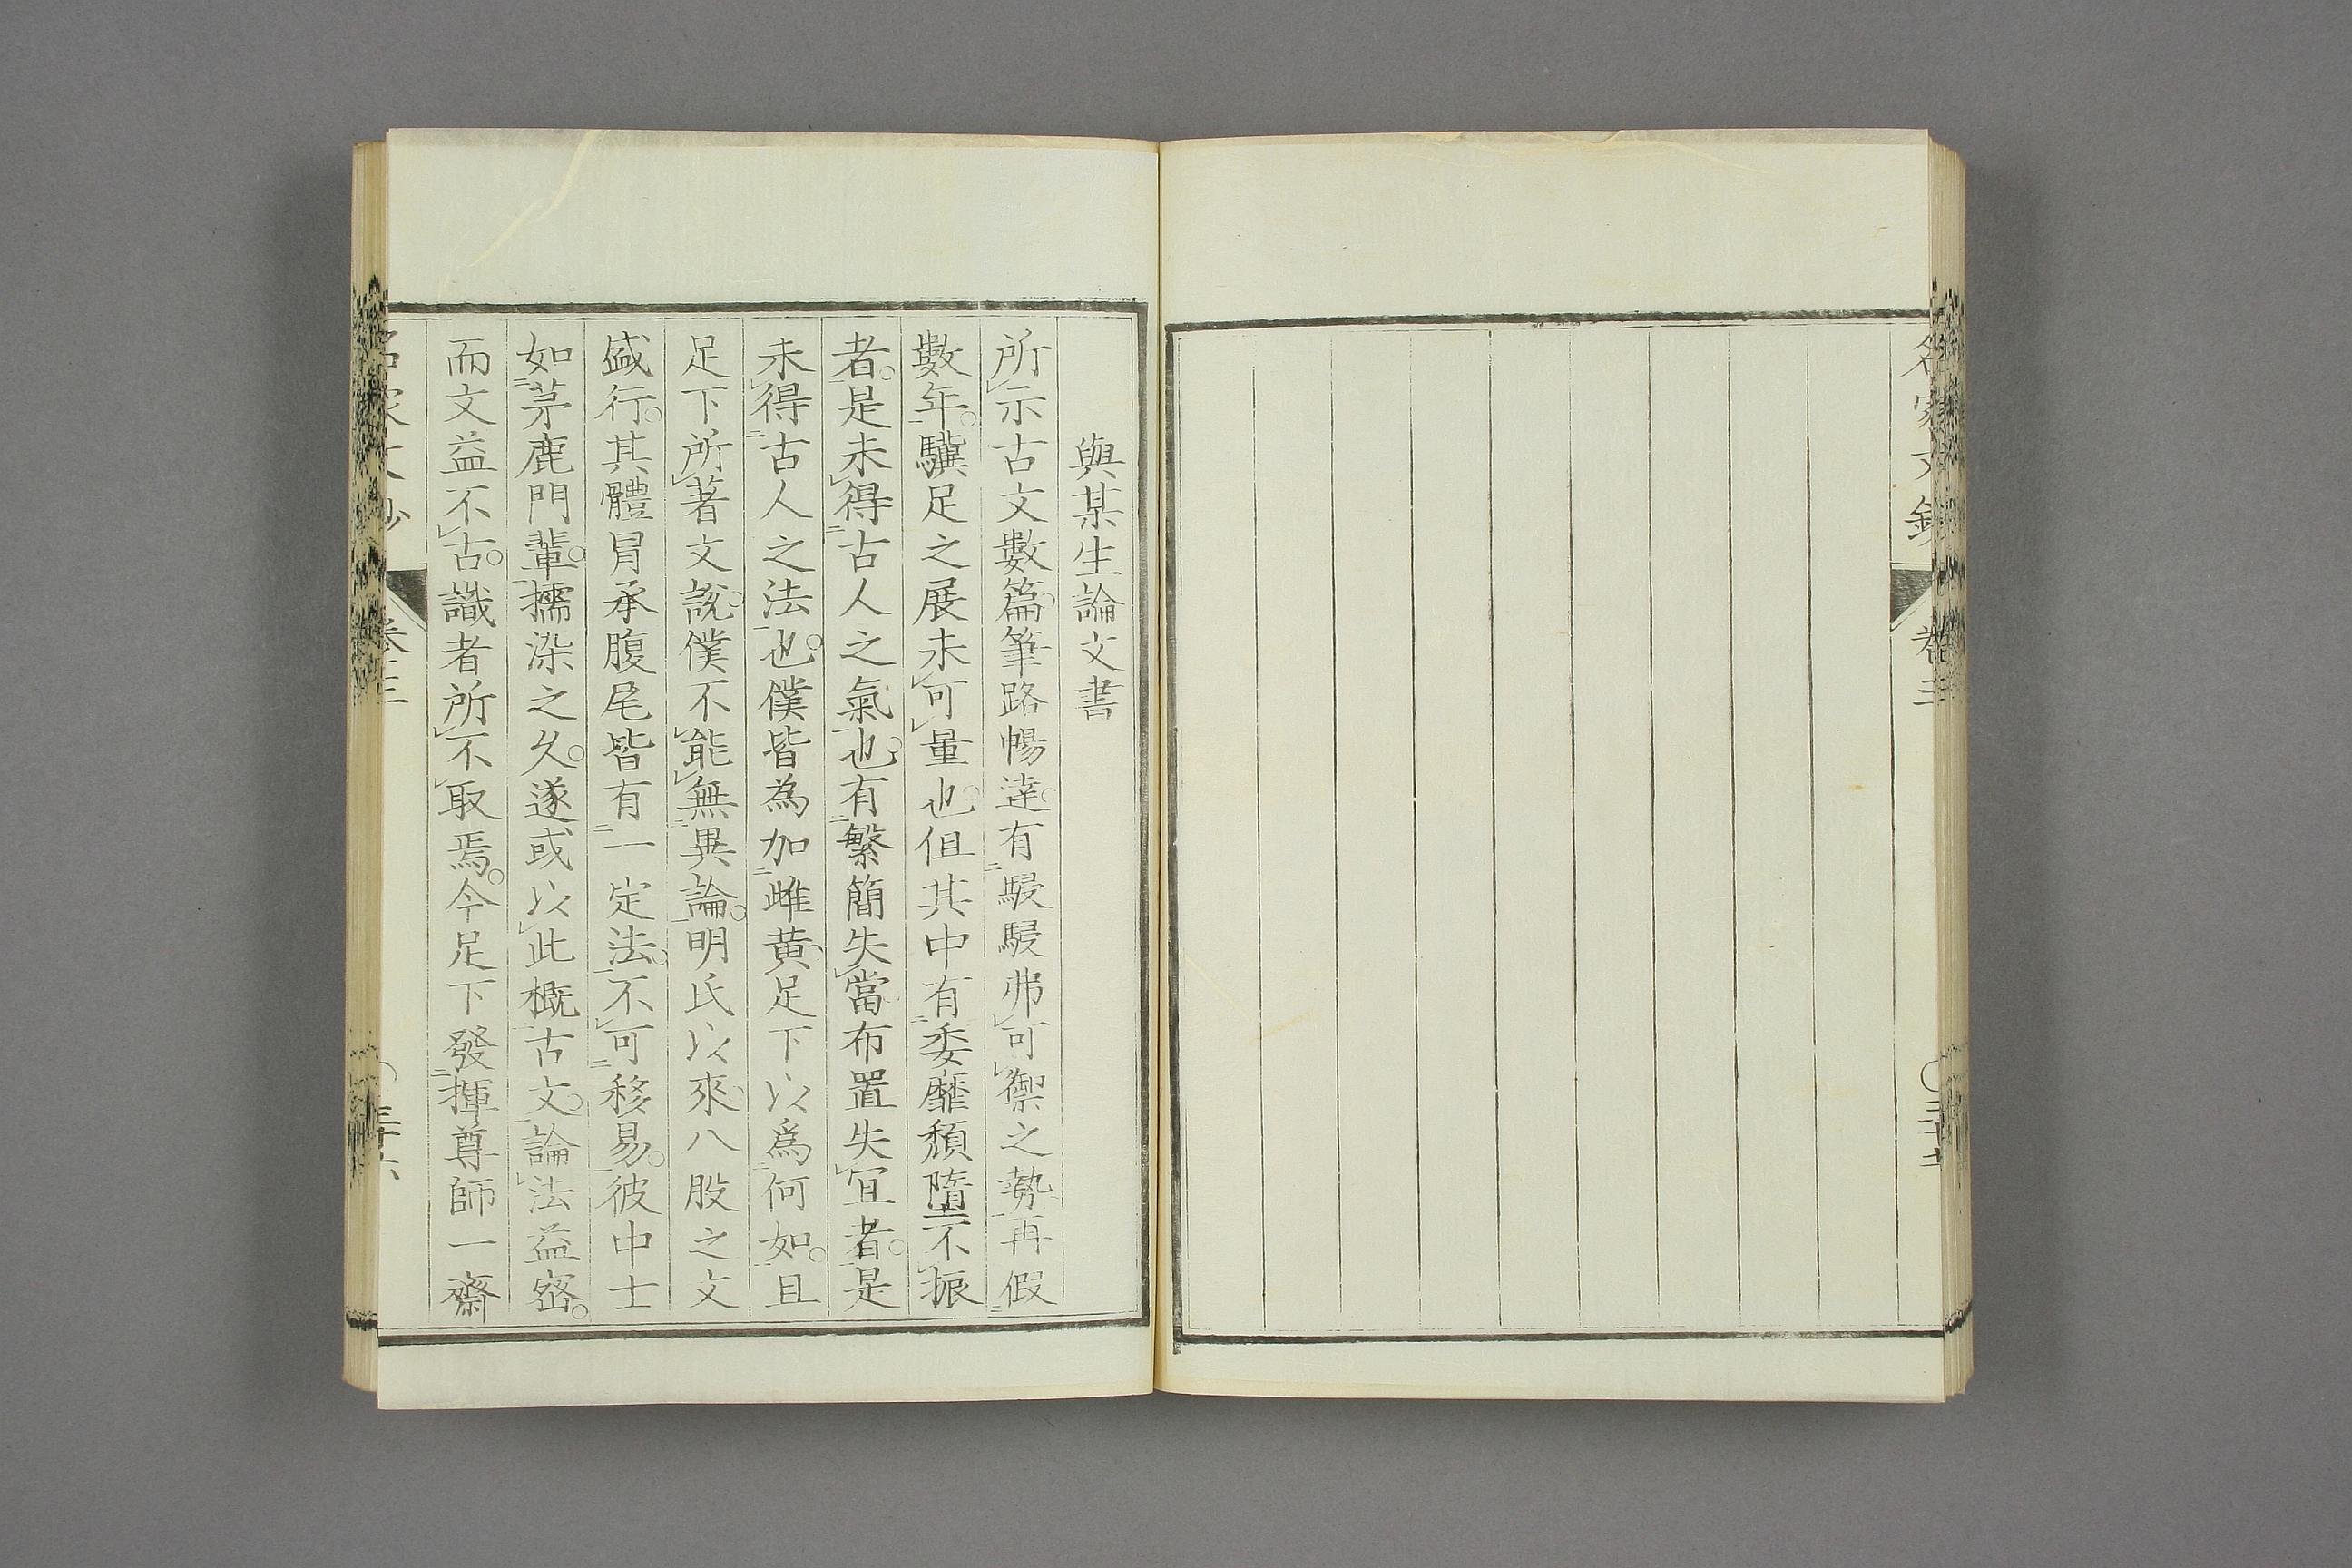 名家文鈔
卷三
與某生論文書
所示古文數篇。筆路暢達。有駸駸弗可禦之勢。再假
數年。驥足之展。未可量也。但其中有委靡頹墮不振
者。是未得古人之氣也。有繁簡失當。布置失宜者。是
未得古人之法也。僕皆為加雌黃。足下以爲何如。且
足下所著文說。僕不能無異論。明氏以來。八股之文
盛行。其體冒承腹尾。皆有一定法。不可移易。彼中士
如茅鹿門輩。擩染之久。遂或以此概古文。論法益密。
而文益不古。識者所不取焉。今足下發揮尊師一齋
名家文鈔
卷三
三十六